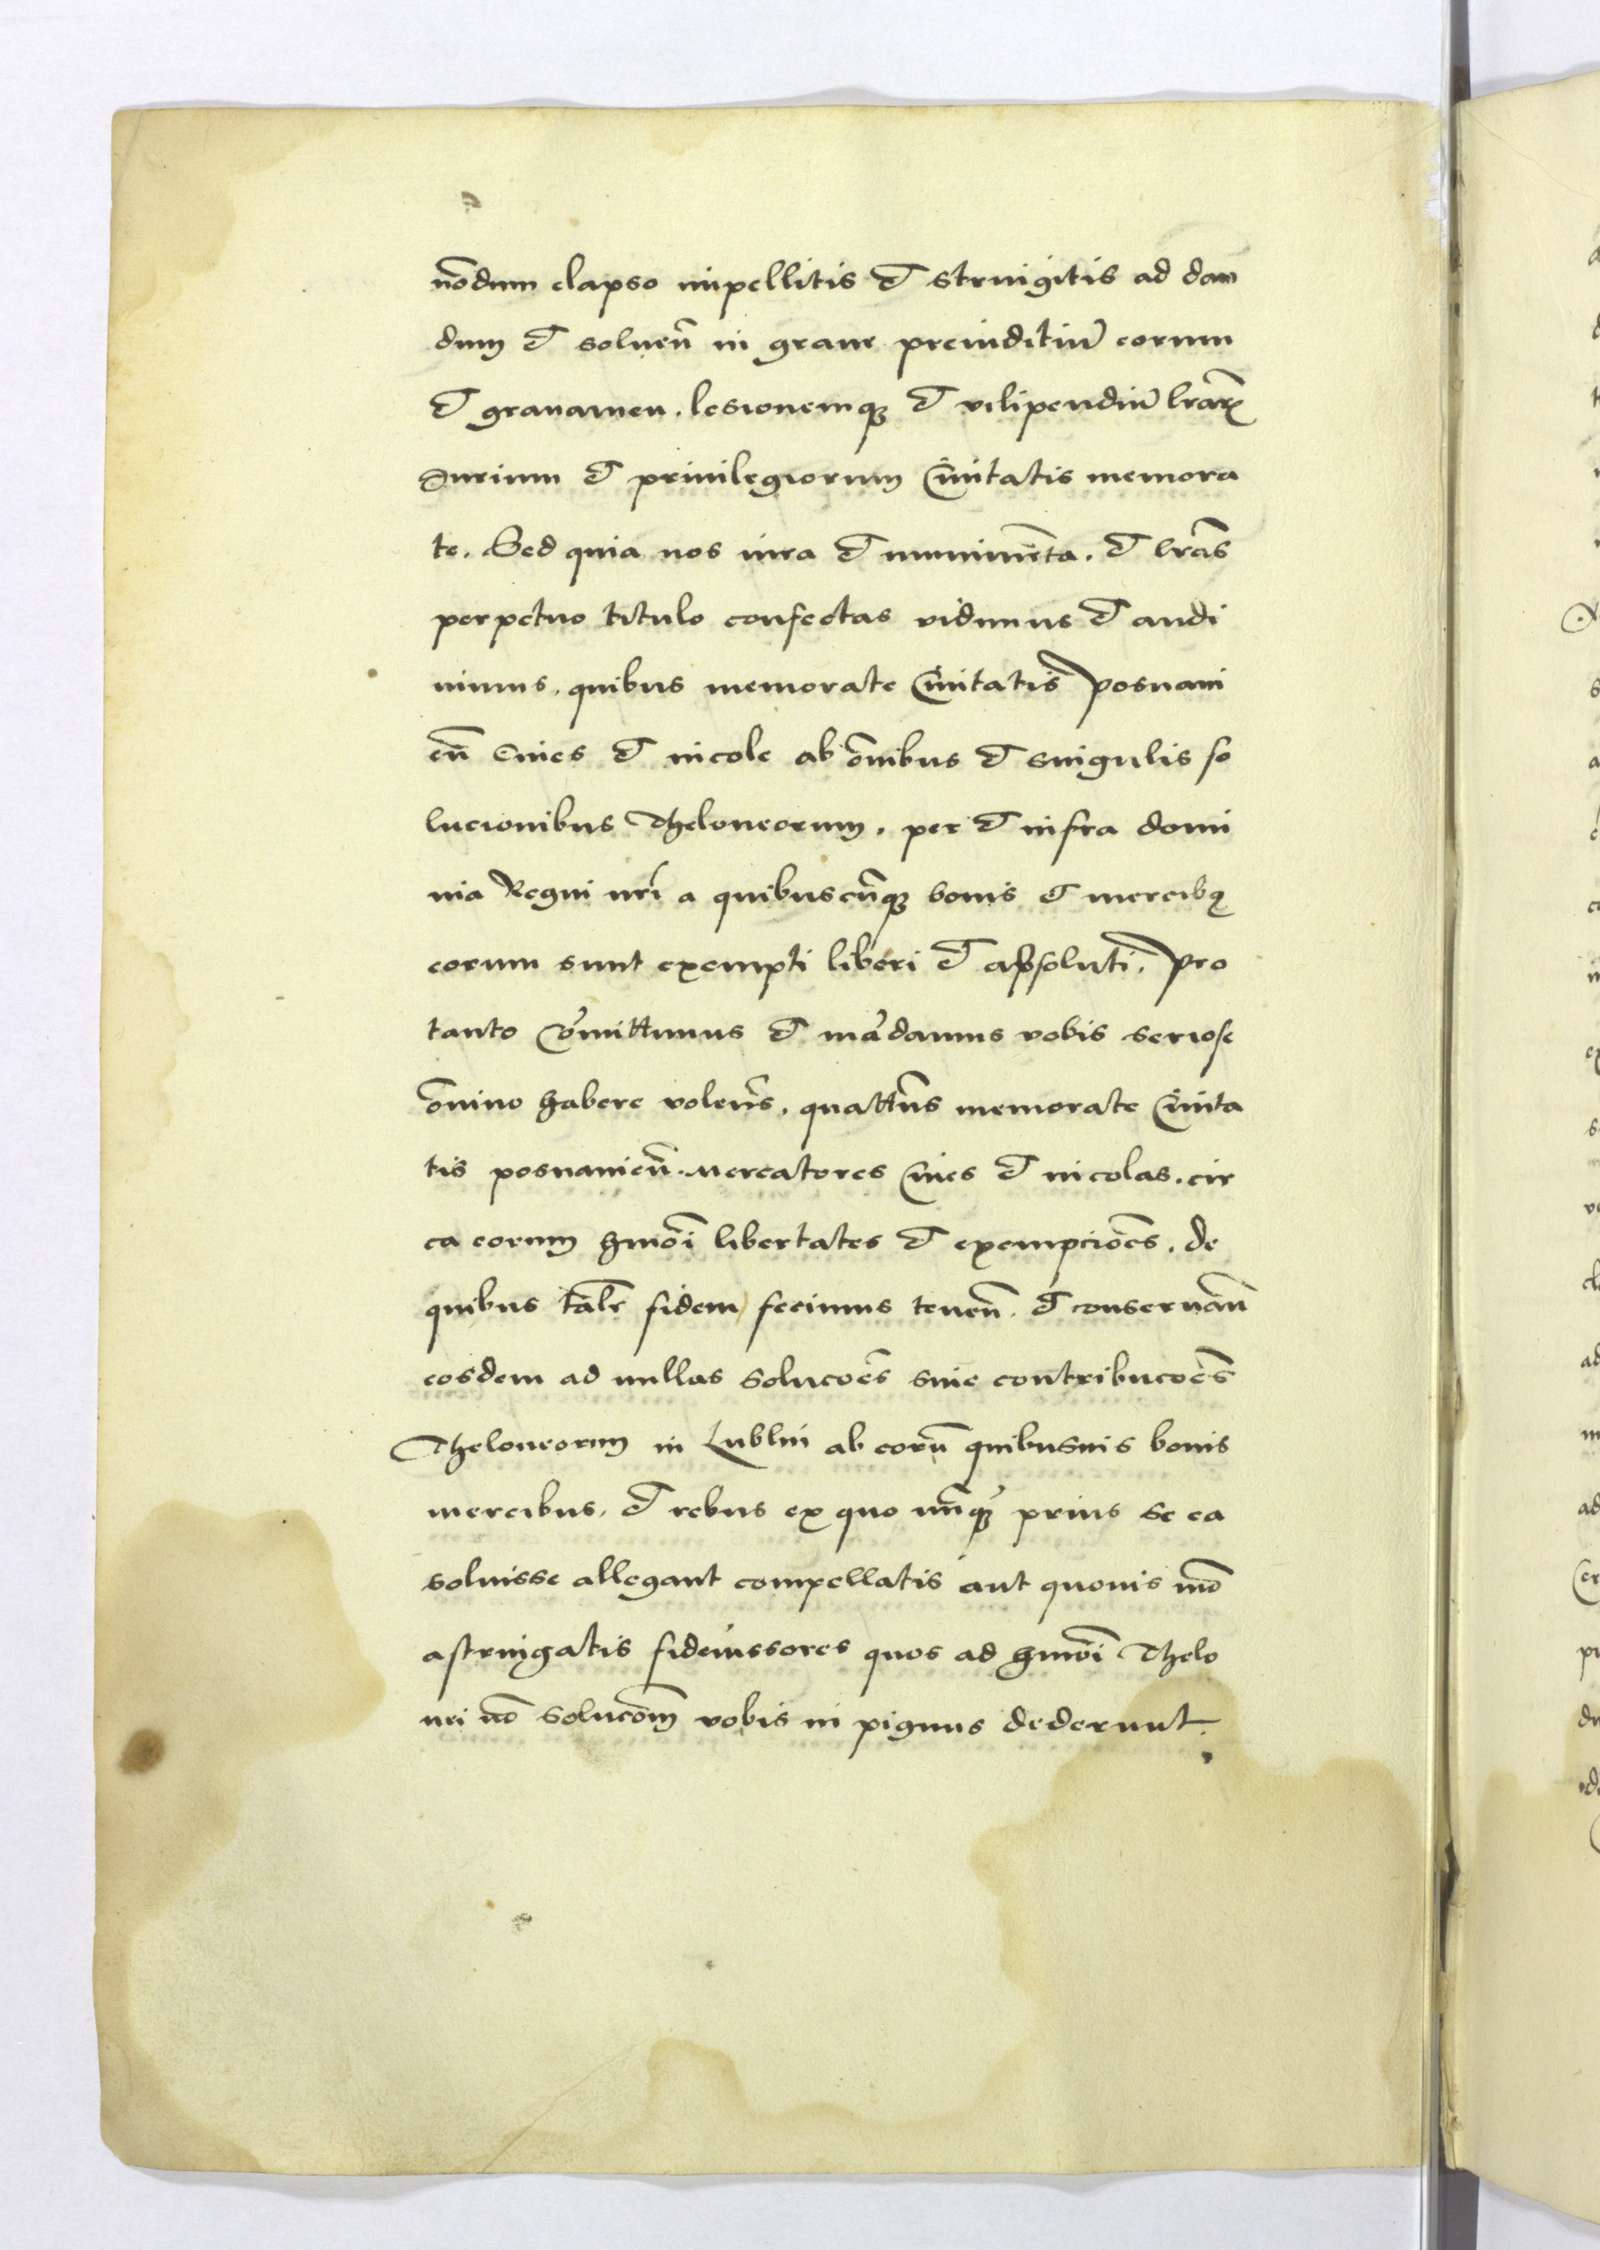 nōdum elapso impellitis et stringitis ad dan
dum et soluen̄ in graue preiuditiū eorum
et grauamen. lesionemq3 et vilipendiū lrarꝝ
Jurium et priuilegiorum Ciuitatis memora
te. Sed quia nos iura et munimēta. et lrās
perpetuo titulo confectas vidimus et audi
uimus. quibus memorate Ciuitatis Posnani
en̄ Ciues et incole ab om̄ibus et singulis so
lucionibus Theloneorum. per et infra domi
nia Regni nrī a quibuscūq3 bonis et mercibꝯ
eorum sunt exempti liberi et absoluti. Pro
tanto Com̄ittimus et mādamus vobis seriose
om̄ino habere volen̄s. quatten̄s memorate Ciuita
tis posnanien̄. mercatores Ciues et incolas. cir
ca eorum hmōi libertates et exempciōes. de
quibus talr̄ fidem fecimus tenen̄. et conseruan̄
eosdem ad nullas solucōes siue contribucōes
Theloneorum in Lublin ab eorū quibusuis bonis
mercibus. et rebus ex quo nūq3 prius se ea
soluisse allegant compellatis aut quouis mō
astringatis fideiussores quos ad hmōi Thelo
nei nō solucōm vobis in pignus dederunt.